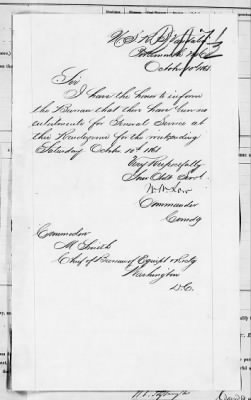 Sir
I have the honor to inform
the Bureau that there have been no
enlistments for General Service at
this Rendezvous for the week ending
Saturday October 10th 1868
Very Respectfully
Your Obdt Servt
Commander
Comdg
Commodore
M Smith
Chief of Bureau of Equipt & Rectg
Washington
D.C.